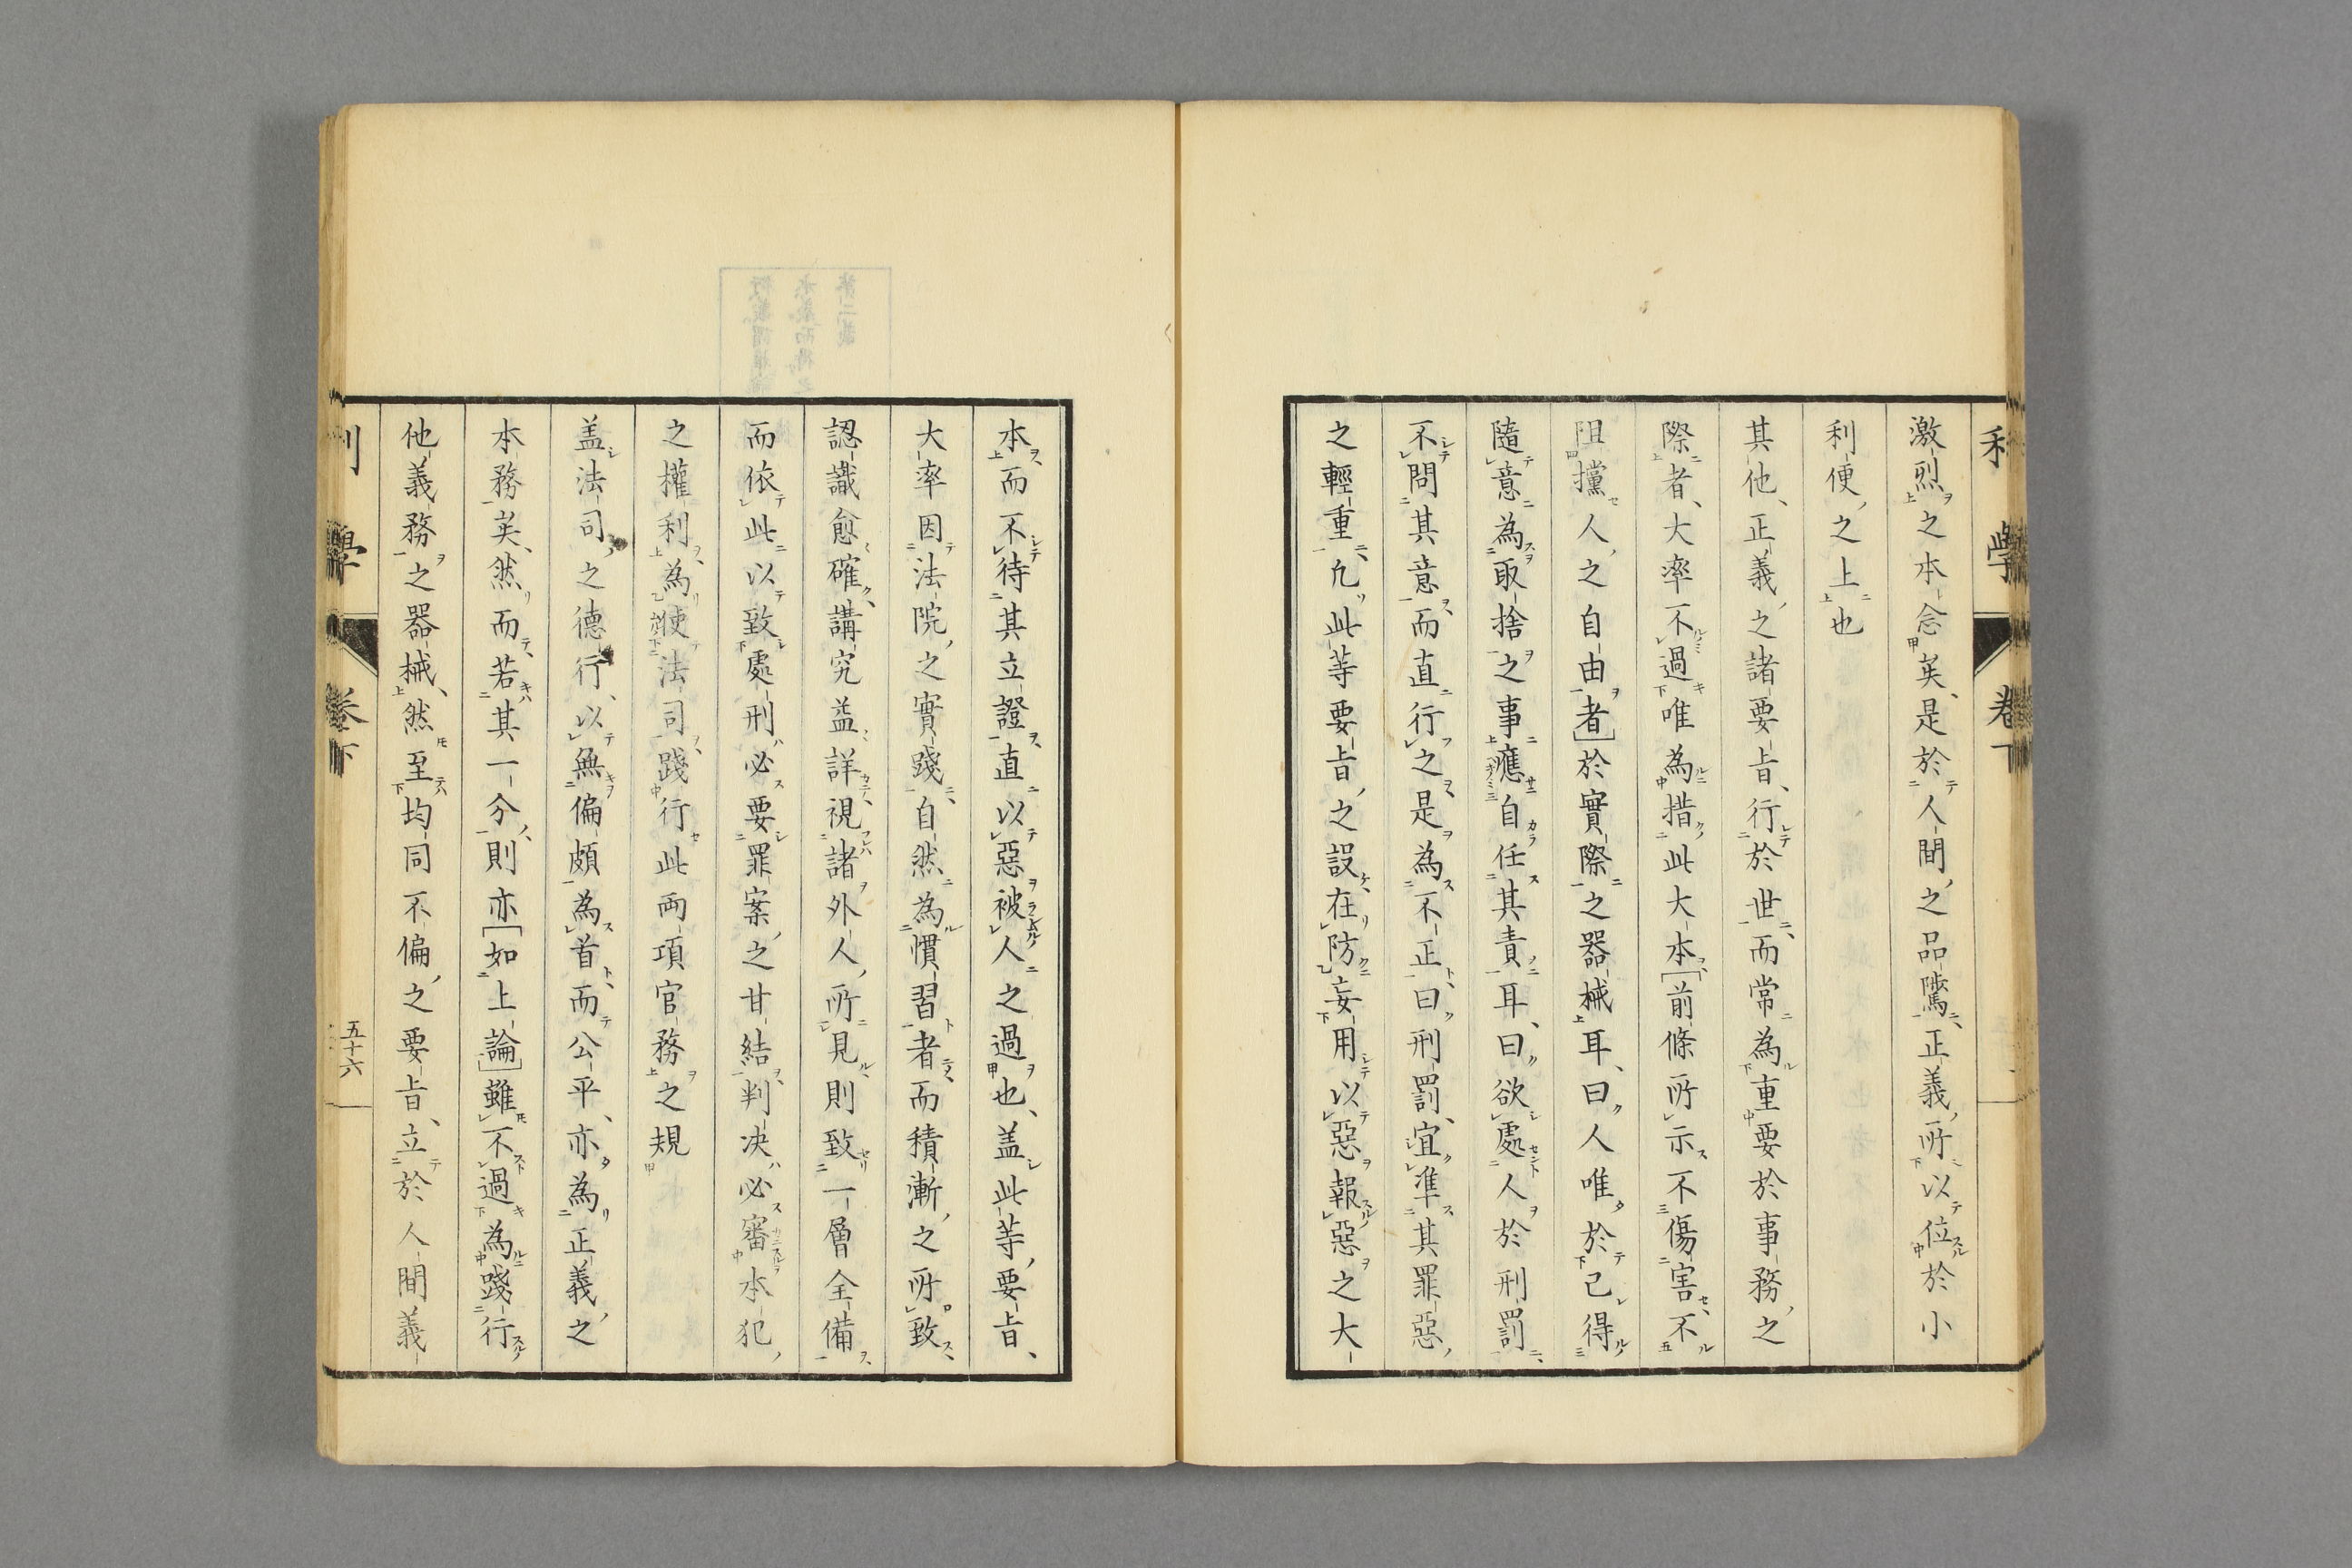 利學 卷下
激烈之本念矣、是於人間之品隲、正義所以位於小
利便之上也
其他、正義之諸要旨、行於世、而常為重要於事務之
際者、大率不過唯為措此大本、[前條所示]不傷害、不
阻攩人之自由者]於實際之器械耳、曰人唯於己得
隨意為取捨之事、應自任其責耳、曰欲處人於刑罰、
不問其意、而直行之、是為不正、曰刑罰、宜準其罪惡
之輕重、凡此等要旨之設、在防妄用以惡報惡之大
本、而不待其立證、直以惡被人之過也、盖此等要旨、
大率因法院之實踐、自然為慣習者、而積漸之所致、
認識愈確、講究益詳、視諸外人所見、則致一層全備、
而依此以致處刑必要罪案之甘結、判决必審本犯
之權利、為使法司、踐行此兩項官務之規
盖法司之德行、以無偏頗為首、而公平、亦為正義之
本務矣、然而若其一分、則亦[如上論]雖不過為踐行
他義務之器械、然至均同不偏之要旨、立於人間義
利學 卷下 五十六